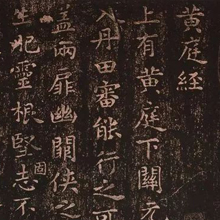 黄庭經
上有黄庭下關元
入丹田審能行之可
盖兩扉幽闕俠之
生肥靈根堅固志不